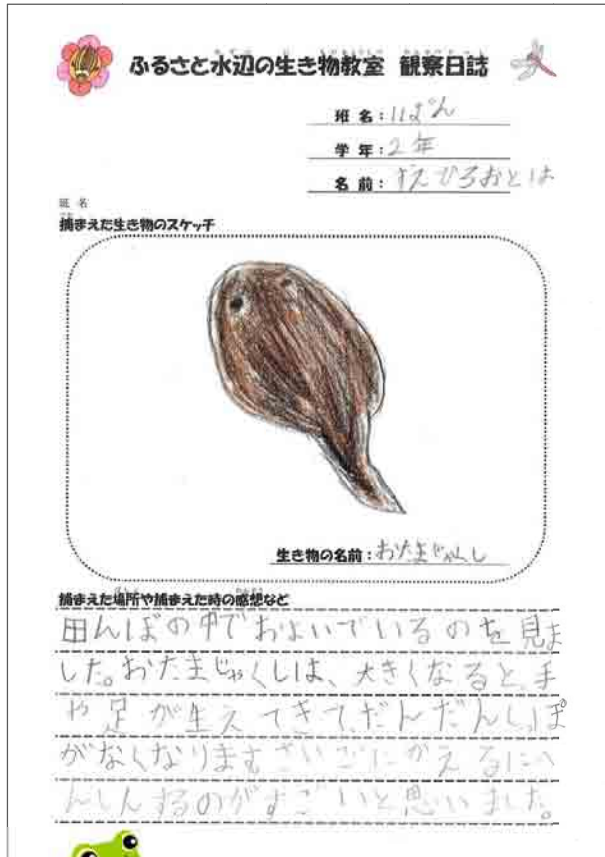 ふるさと水辺の生き物教室 観察日誌
班名:1ぱん
学年:2年
名前:すえひろおとは
班名
捕まえた生き物のスケッチ
生き物の名前:おたまじゃくし
捕まえた場所や捕まえた時の感想など
田んぼの中でおよいでいるのを見ま
した。おたまじゃくしは、大きくなると、手
や足が生えてきて、だんだんしっぽ
がなくなります。さいごにかえるにへ
んしんするのがすごいと思いました。